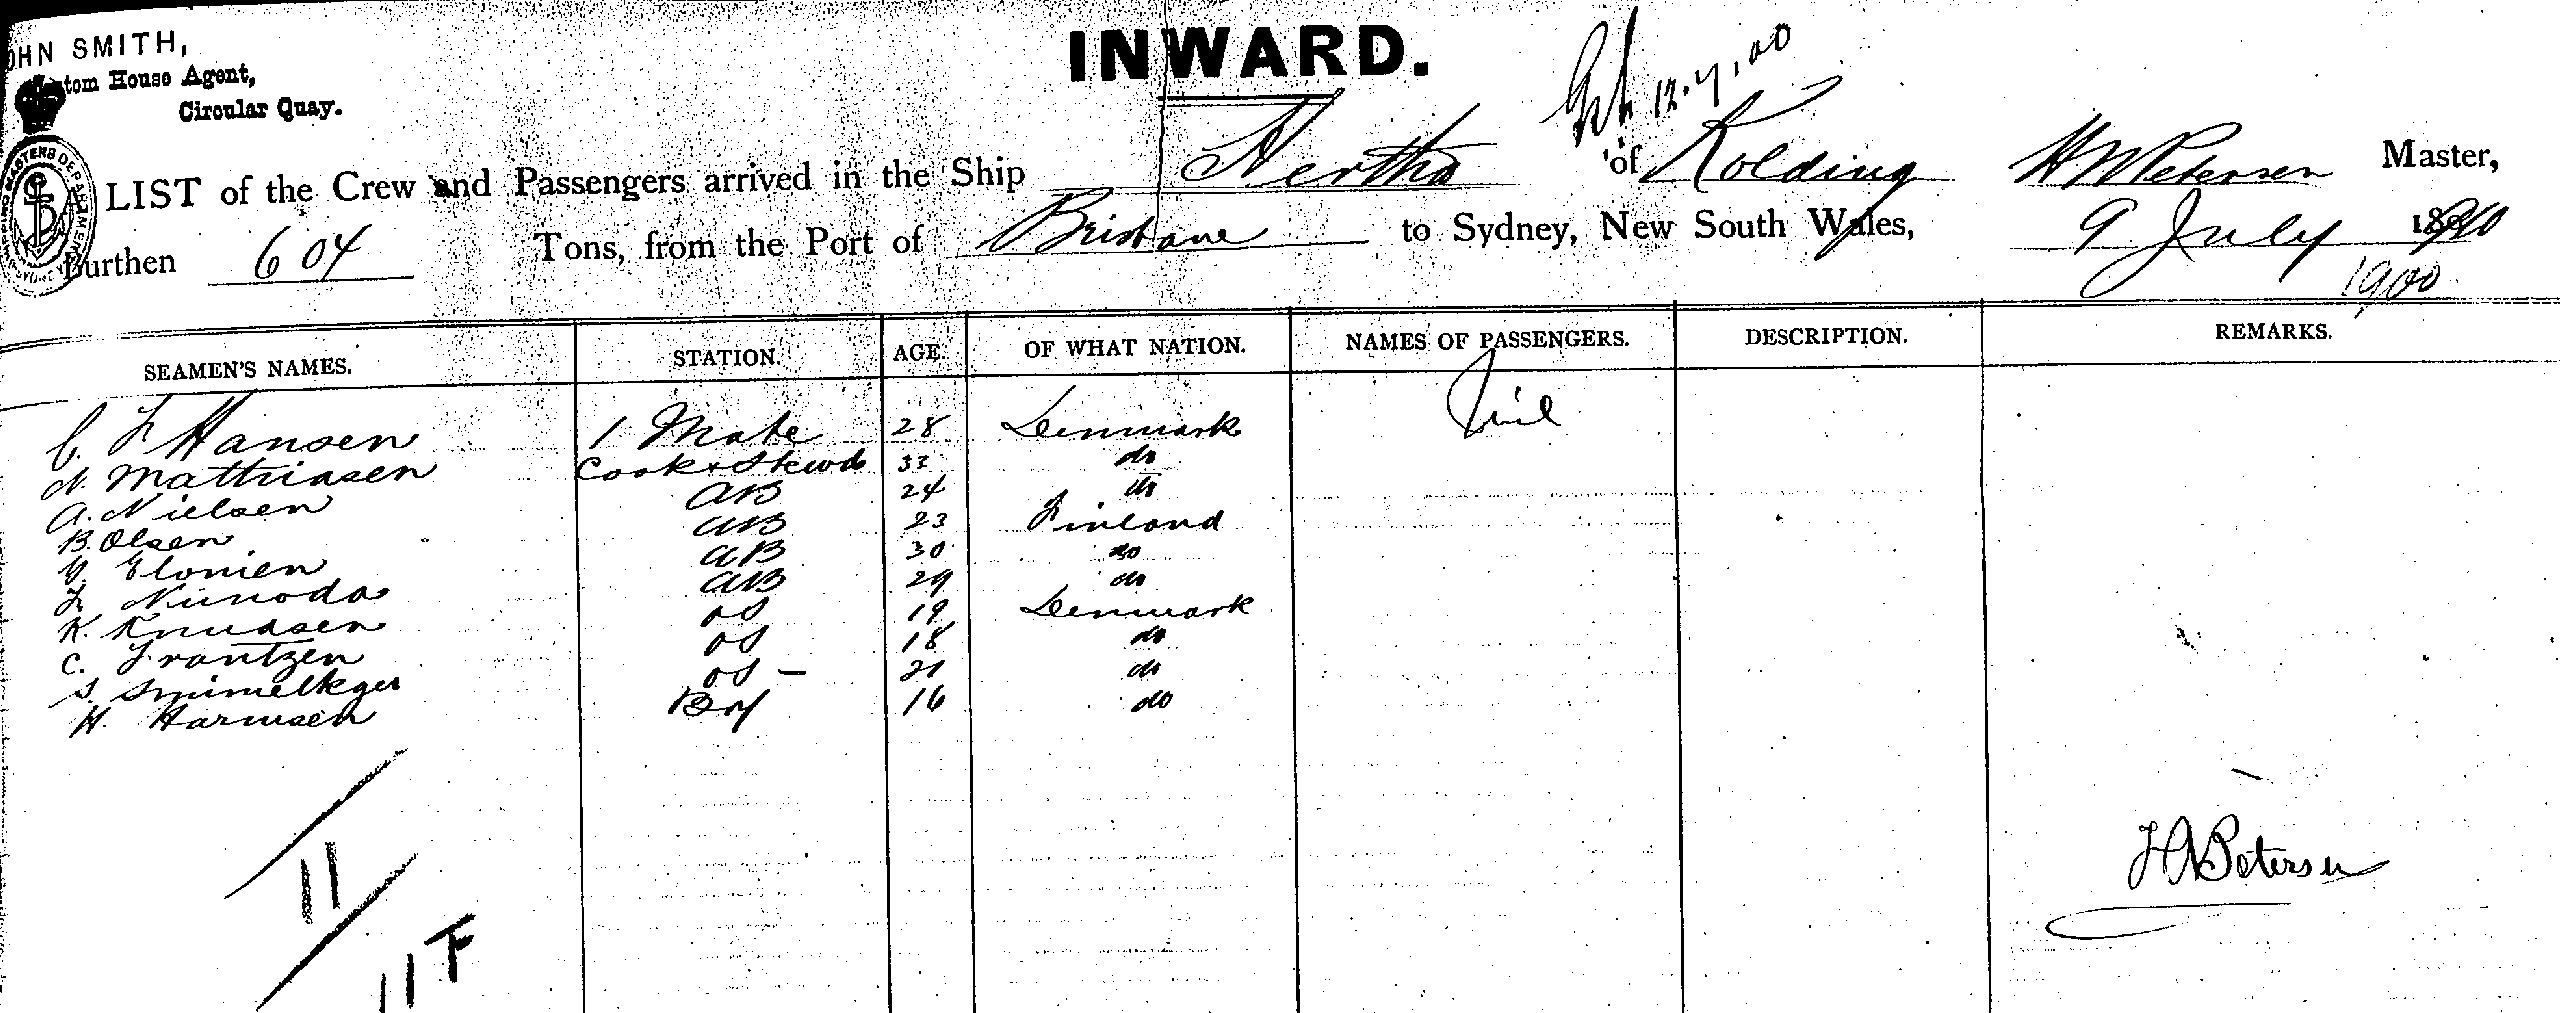 INWARD.
OHN SMITH,
tom House Agent,
Circular Quay.
12.7.00
LIST of the Crew and Passengers arrived in the Ship Hertha of Kolding H Petersen Master,
Burthen 604 Tons, from the Port of Brisbane to Sydney, New South Wales, 9 July 1900
1900
SEAMEN'S NAMES. STATION. AGE. OF WHAT NATION. NAMES OF PASSENGERS. DESCRIPTION. REMARKS.
C. F Hansen 1 Mate 28 Denmark Nil
N. Mathiasen Cook & Stewd 33 do
A. Nielsen AB 24 do
B. Olsen AB 23 Finland
Elonien AB 30 do
F Niinoda AB 29 do
K. Knudsen OS 19 Denmark
C. Frantzen OS 18 do
S. OS - 21 do
H. Harmsen Boy 16 do
11
11 F
H Petersen